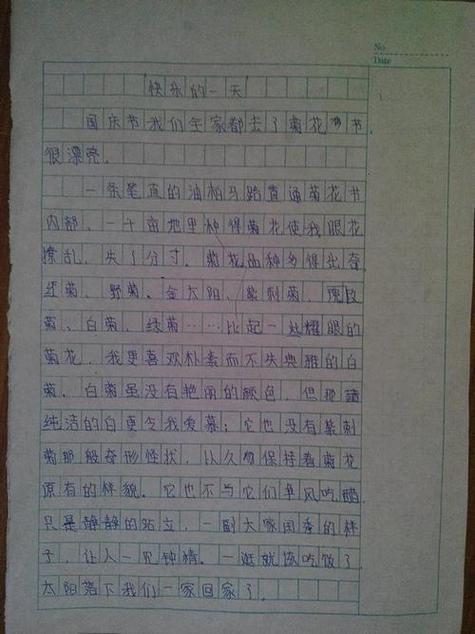 No
Date
快乐的一天
国庆节我们全家都去了菊花节
很漂亮。
一条笔直的油柏马路直通菊花节
内部、一千亩地里种得菊花使我眼花
撩乱，失了分寸。菊花品种多得出奇
红菊、野菊、金太阳、紫刺菊、
菊、白菊、绿菊……比起一些耀眼的
菊花，我更喜欢朴素而不失典雅的白
菊。白菊虽没有艳丽的颜色，但那
纯洁的白更令我爱慕；它也没有紫刺
菊那般奇形怪状，以久的保持着菊花
原有的样貌。它也不与它们争风吃醋
只是静静的站立，一副大家闺秀的样
子，让人一见钟情。一逛就该吃饭了
太阳落下我们一家回家了。